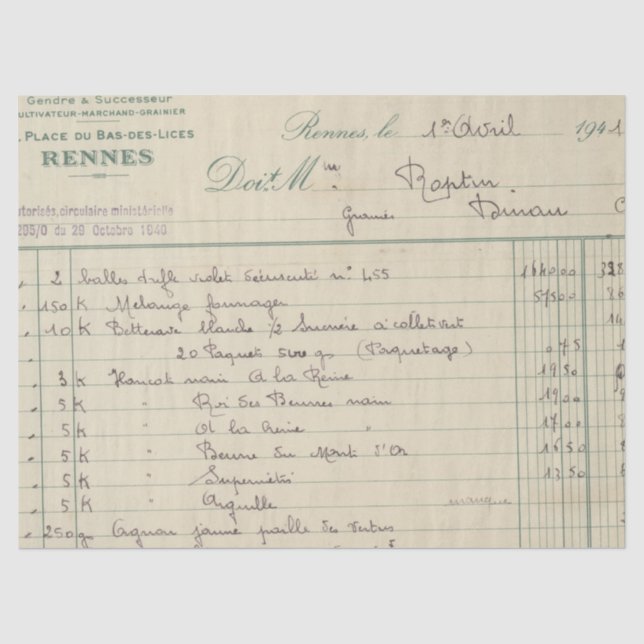 Gendre & Successeur
ULTIVATEUR-MARCHAND-GRAINIER
PLACE DU BAS-DES-LICES
RENNES
Rennes, le 1er Avril 1941
Doit M
Graines Dinan
torisés, circulaire ministérielle
205/0 du 29 Octobre 1940
2 balles trèfle violet décuscuté n° 455 1640 00
150 K Mélange fourrager 575 00
10 K Betterave blanche 1/2 Sucrière à collet vert
20 Paquets 500 gs (Paquetage) 0 75
3 K Haricot nain à la Reine 19 50
5 K " Roi des Beurres nain 19 00
5 K " à la Reine " 17 00
5 K " Beurre du Mont d'Or 16 50
5 K " 13 50
5 K " Aiguille manque
250 gs Oignon jaune paille des Vertus